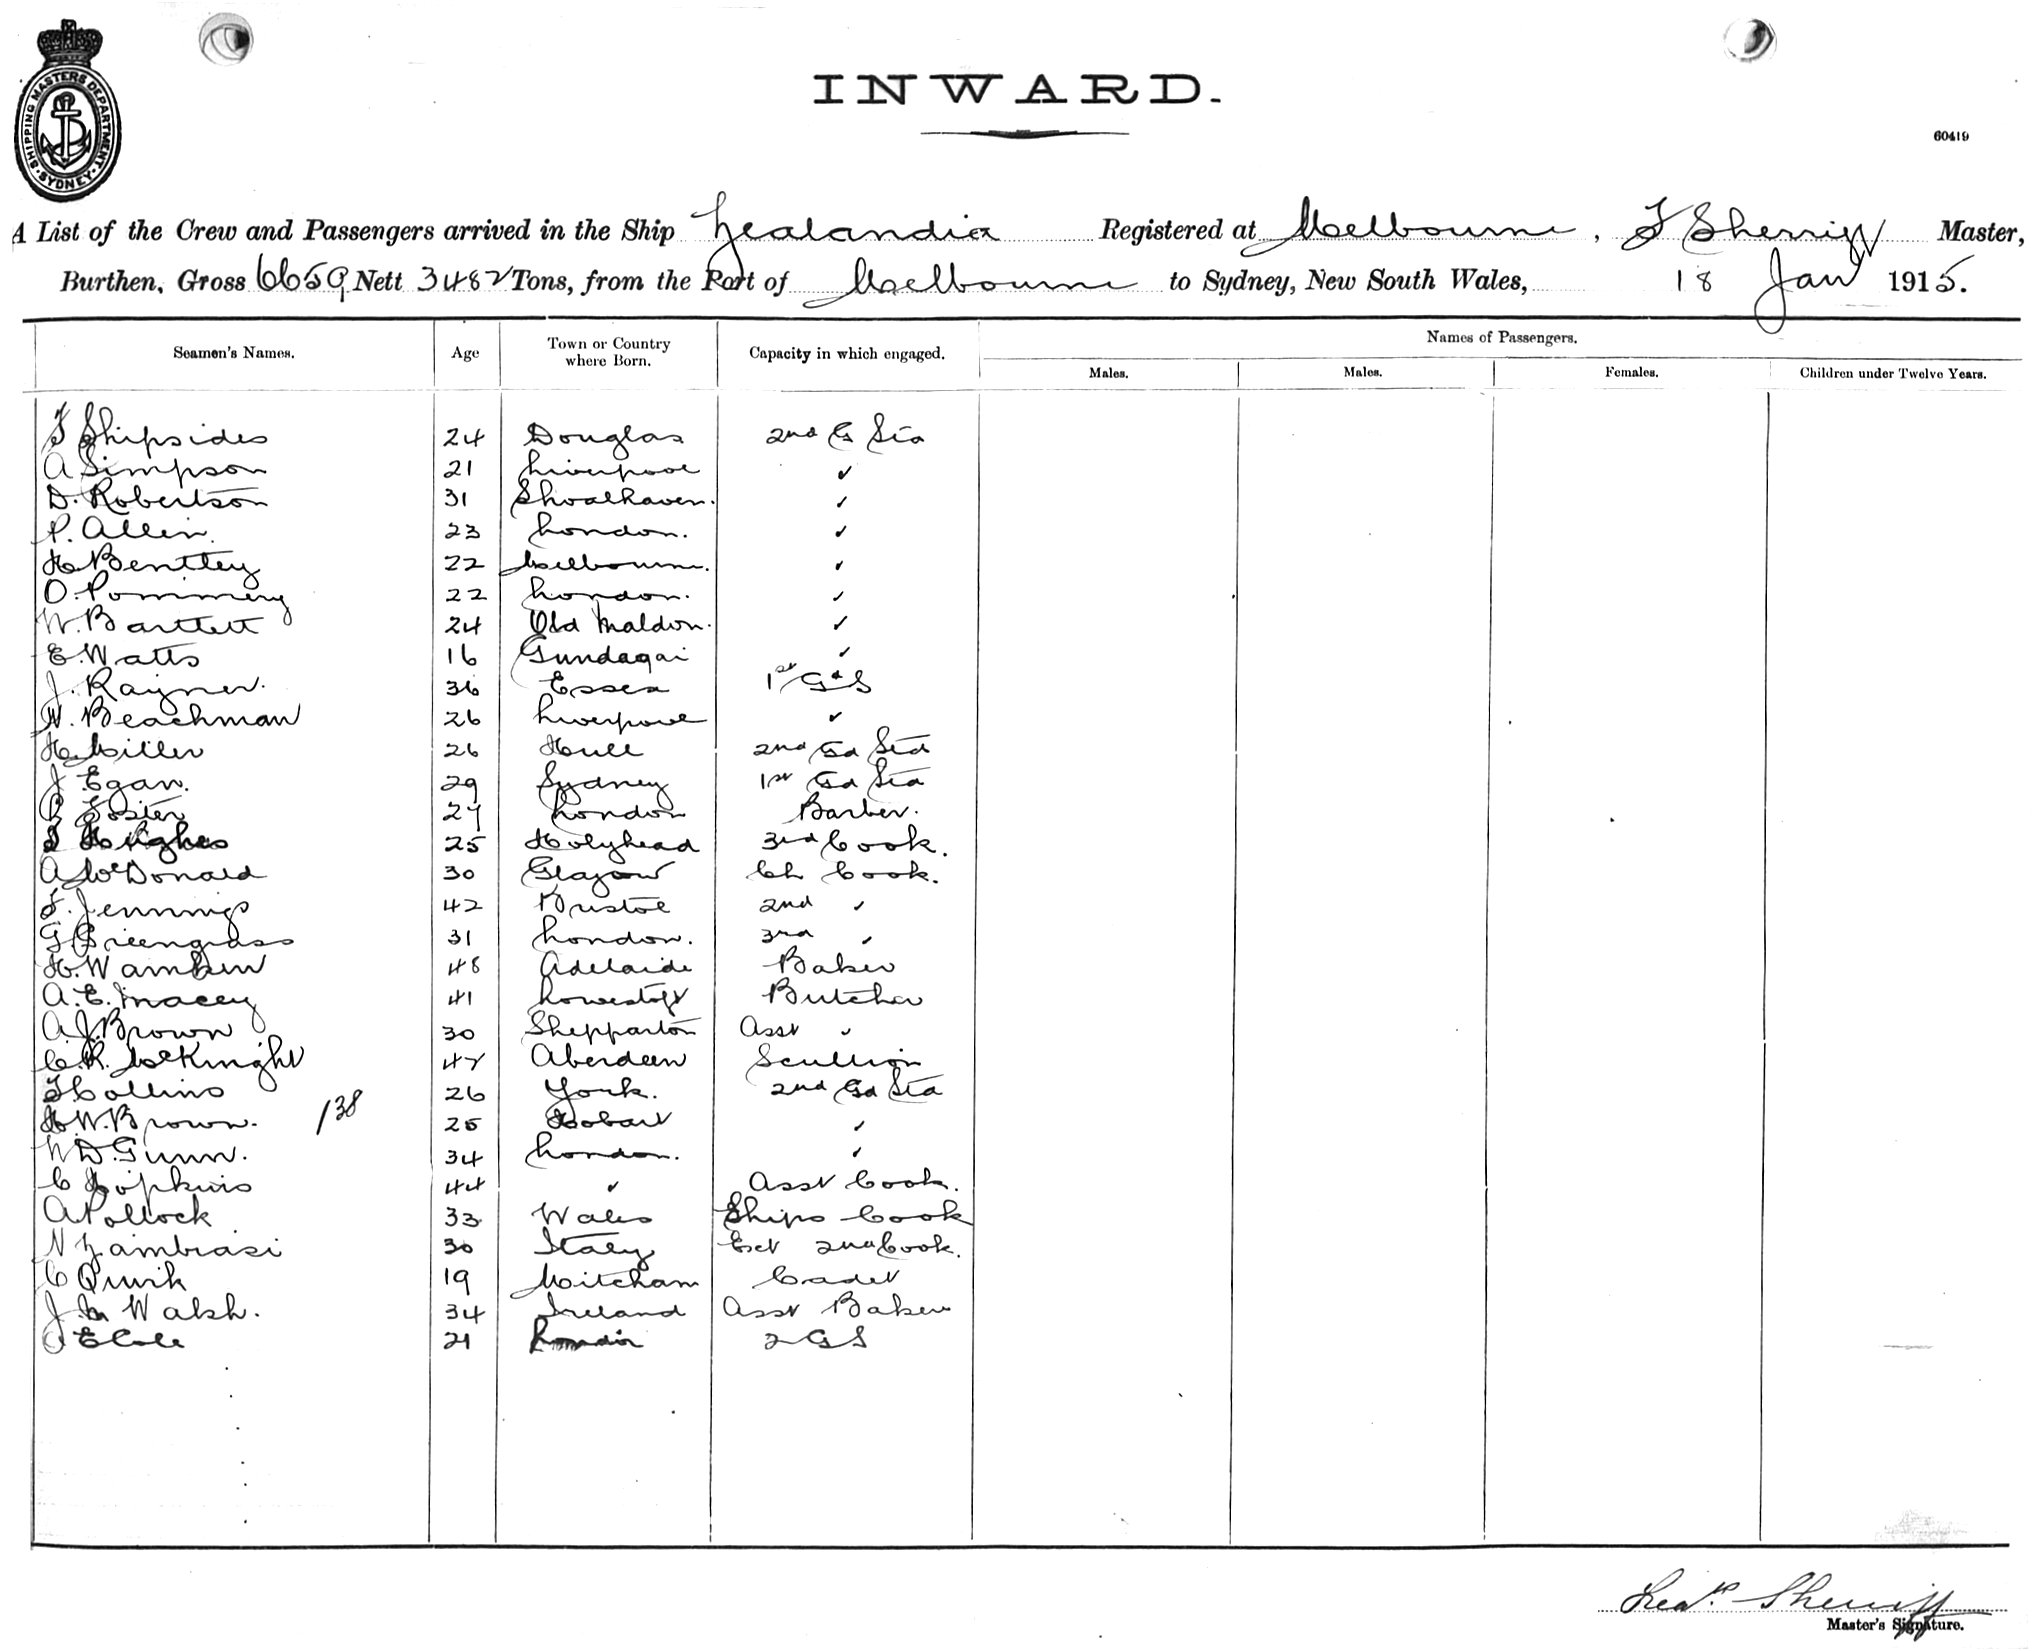 SHIPPING MASTERS DEPARTMENT. SYDNEY.
INWARD.
60419
A List of the Crew and Passengers arrived in the Ship Zealandia Registered at Melbourne, F Sherriff Master,
Burthen, Gross 6659 Nett 3482 Tons, from the Port of Melbourne to Sydney, New South Wales, 18 Jany 1915.
Names of Passengers.
Seamen's Names. Age Town or Country where Born. Capacity in which engaged. Males. Males. Females. Children under Twelve Years.
F Shipsides 24 Douglas 2nd G Std
A Simpson 21 Liverpool ✓
D. Robertson 31 Shoalhaven. ✓
P. Allen. 23 London. ✓
H Bentley 22 Melbourne. ✓
O. Pommery 22 London. ✓
W. Bartlett 24 Old Maldon. ✓
E. Watts 16 Gundagai ✓
J. Rayner. 36 Essex 1st G d S
W. Beachman 26 Liverpool ✓
H. Miller 26 Hull 2nd Gd Std
J Egan. 29 Sydney 1st Gd Std
Foster 27 London Barber.
Hughes 25 Holyhead 3rd Cook.
A McDonald 30 Glasgow Ch Cook.
F. Jennings 42 Bristol 2nd ✓
G. Greengrass 31 London. 3rd ✓
H. Wamken 48 Adelaide Baker
A. E. Macey 41 Lowestoft Butcher
A J Brown 30 Shepparton Asst ✓
C. R. McKnight 47 Aberdeen Scullion
F Collins 26 York. 2nd Gd Std
H. W. Brown. 138 25 Hobart ✓
W D. Gunn. 34 London. ✓
C Hopkins 44 ✓ Asst Cook.
A Pollock 33 Wales Ships Cook
N Zambrasi 30 Italy Ext 2nd Cook.
C Quirk 19 Mitcham Cadet
J. Walsh. 34 Ireland Asst Baker
E Cole 21 London 2 G S
Fredk. Sherriff
Master's Signature.